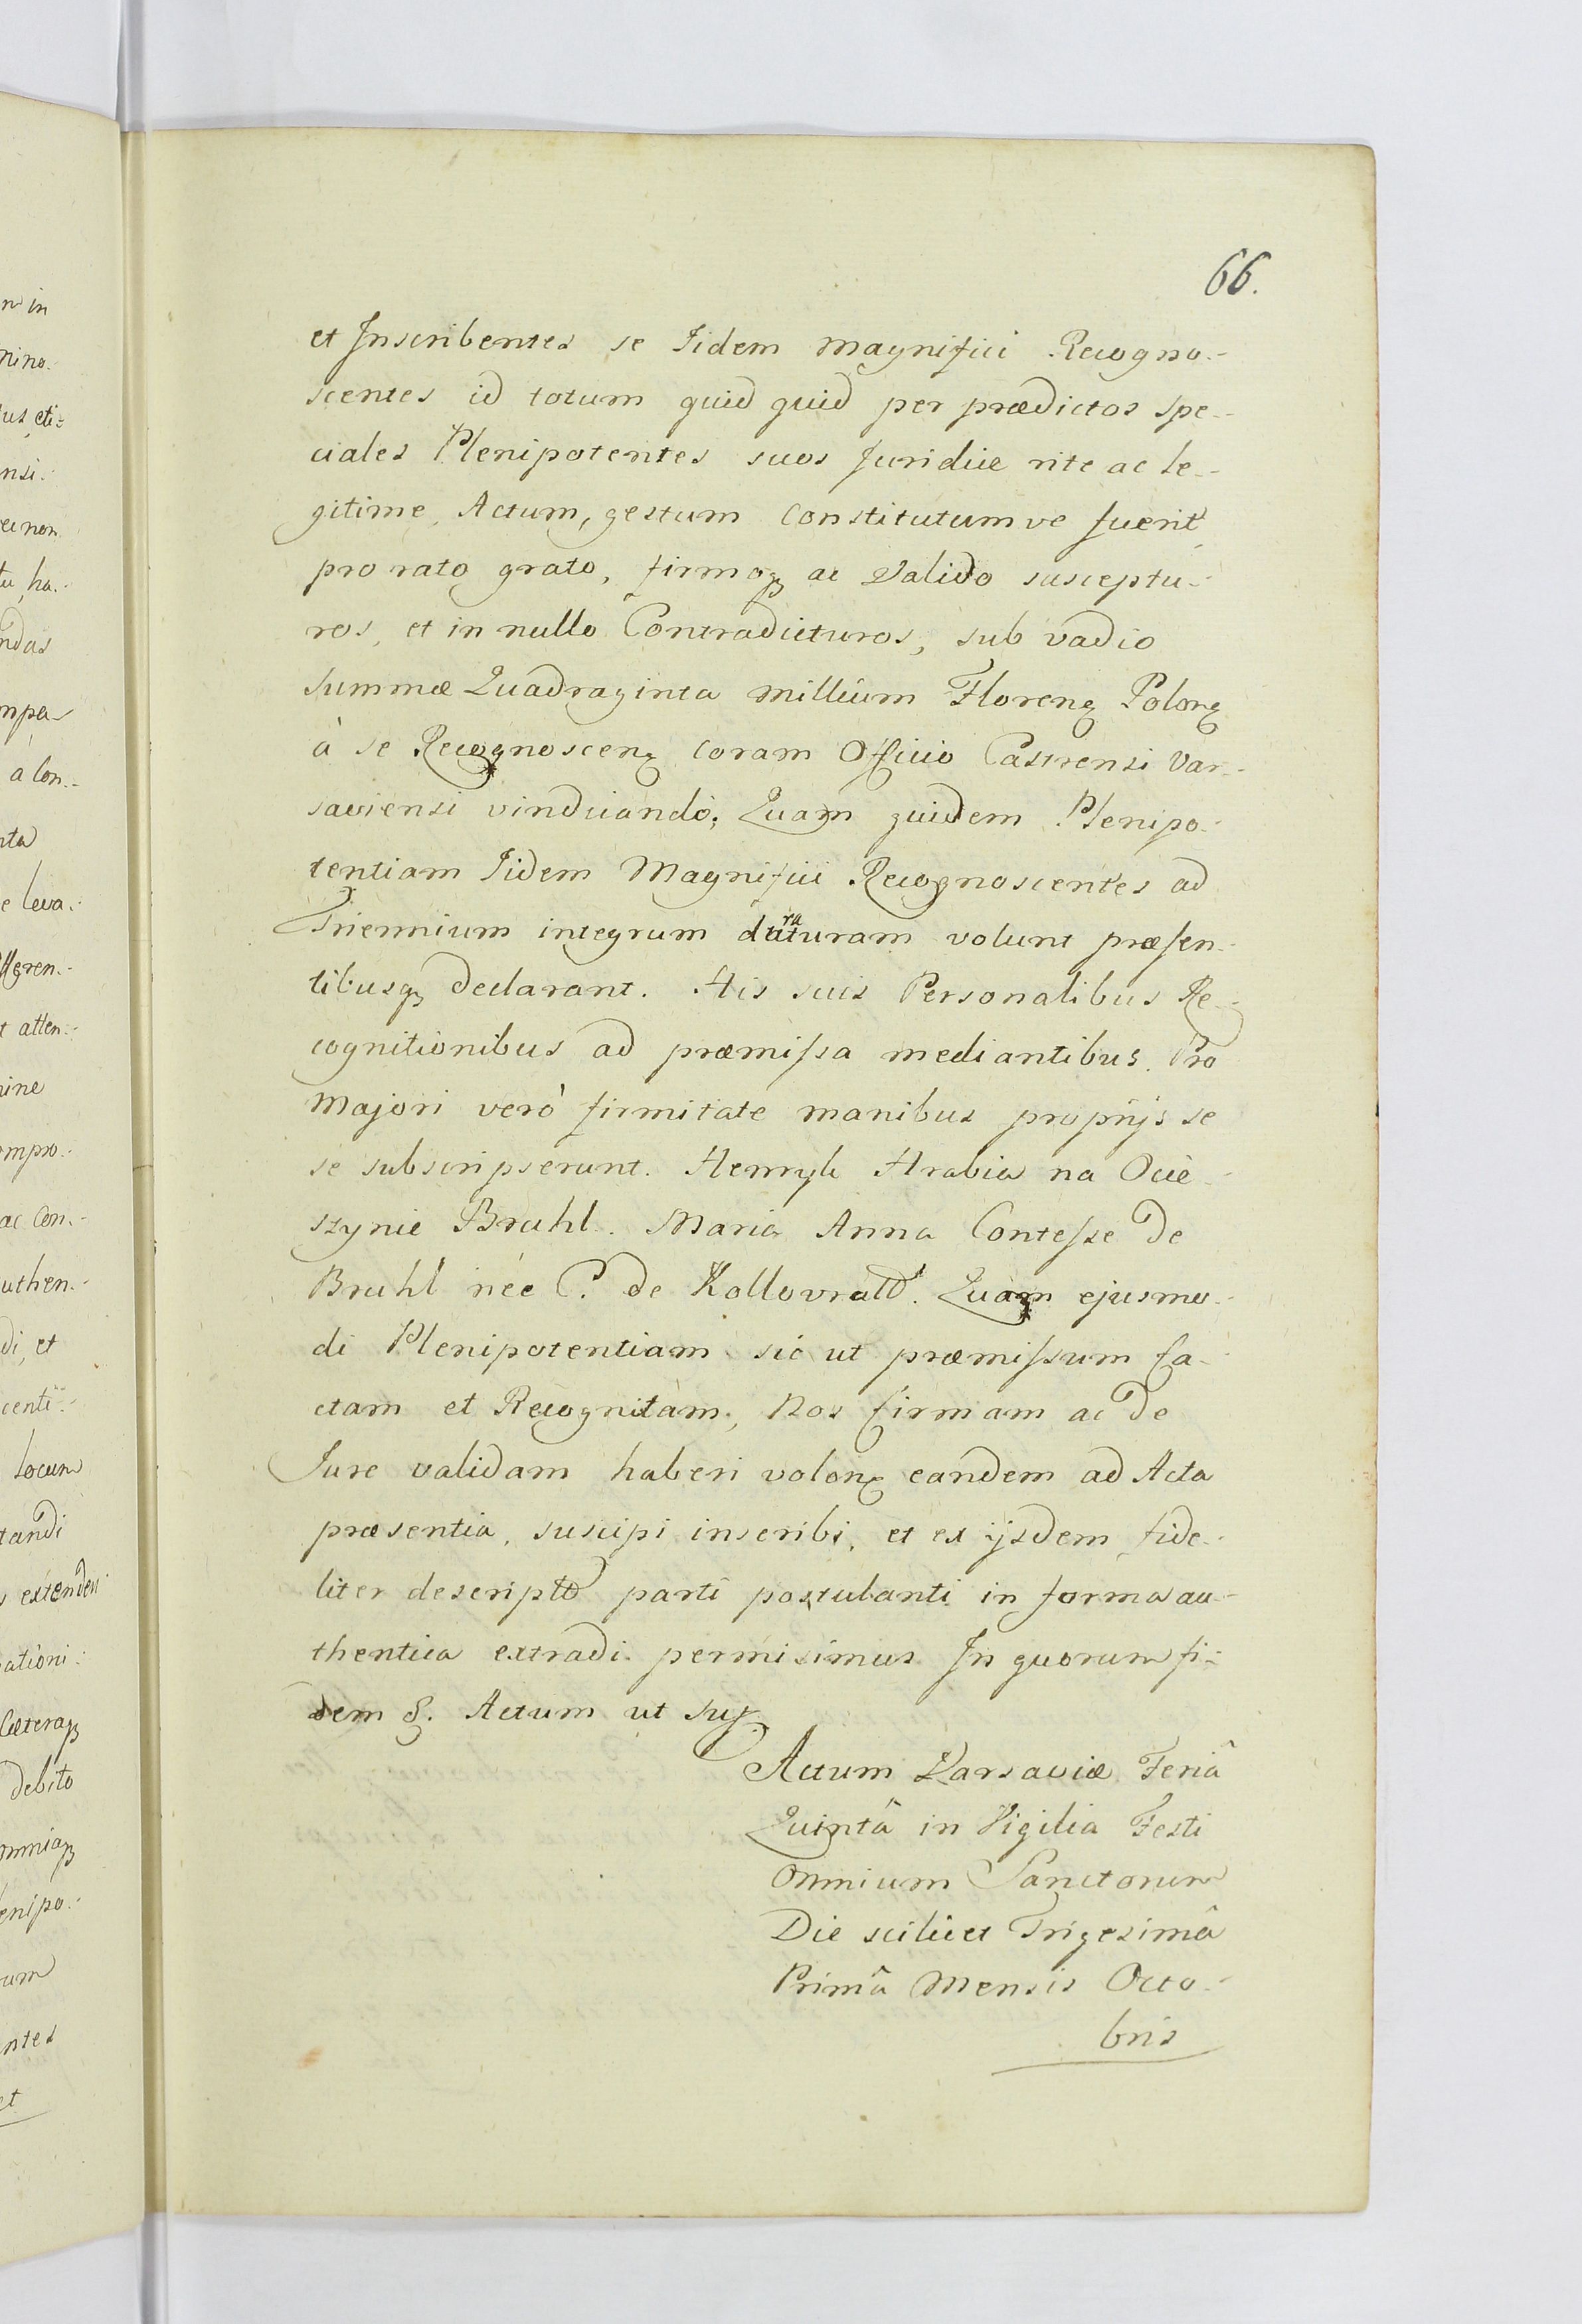 66.
et Inscribentes se Iidem Magnifici Recogno-
scentes id totum quid quid per prædictos spe-
ciales Plenipotentes suos Juridice rite ac le-
gitime, Actum, gestum Constitutum ve fuerit,
pro rato grato, firmoqꝫ ac Valido susceptu-
ros, et in nullo Contradicturos, sub vadio
summæ Quadraginta millium Florenꝝ Polonꝝ
à se Recognoscenꝝ coram Officio Castrensi Var-
saviensi vindicando; Quam quidem Plenipo-
tentiam Iidem Magnifici Recognoscentes ad
Triennium integrum duraturam volunt præsen-
tibusqꝫ declarant. His suis Personalibus Re-
cognitionibus ad præmissa mediantibus. Pro
Majori verò firmitate manibus proprijs se
se subscripserunt. Henryk Hrabia na Ocie-
szynie Bruhl. Maria Anna Contesse de
Bruhl née C. de Kollovratd. Quam ejusmo-
di Plenipotentiam sic ut præmissum fa-
ctam et Recognitam, Nos firmam ac de
Jure validam haberi volenꝝ eandem ad Acta
præsentia, suscipi inscribi, et ex ijsdem fide-
liter descriptã parti postulanti in forma au-
thentica extradi permisimus. In quorum fi-
dem &. Actum ut sup.
Actum Varsaviæ Feriâ
Quintâ in Vigilia Festi
Omnium Sanctorum
Die scilicet Trigesimâ
Primâ Mensis Octo-
bris
n in
nino.
us eti=
nsi.
ei non
tu, ha.
ndas
mpa
a con.
nta
e leva.
t atten.
nine
ompro.
ac Con.
uthen.
di, et
centi
locum
tandi
extenden
ationi
Cæteraqꝫ
debito
mniaqꝫ
enipo.
um
ntes
et